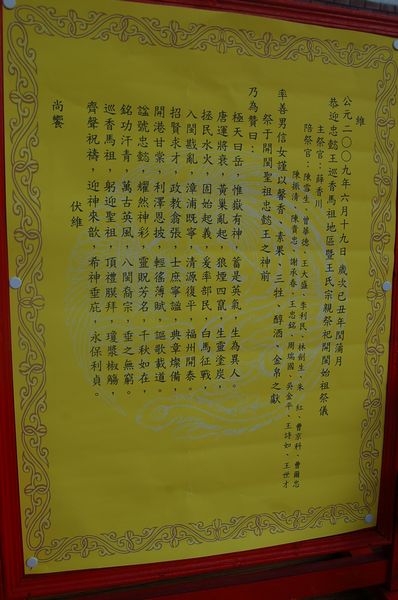 維
公元二○○九年六月十九日 歲次己丑年閏蒲月
恭迎忠懿王巡香馬祖地區暨王氏宗親祭祀開閩始祖祭儀
主祭官：薛香川
陪祭官：陳雪生、曾華德、王大盛、李利民、林劍生、朱 紅、曹京科、曹爾忠
陳振清、陳貴忠、謝承春、王忠銘、周瑞國、吳金平、王詩如、王世才
率善男信女謹以馨香、素果、三牲、醇酒、金帛之獻
祭于開閩聖祖忠懿王之神前
乃為贊曰：
極天曰岳，惟嶽有神，蓄是英氣，生為異人。
唐運將衰，黃巢亂起，狼煙四竄，生靈塗炭，
拯民水火，固始起義，爰率部民，白馬征戰，
入閩戡亂，漳浦既寧，清源復平，福州開泰。
招賢求才，政教翕張，士庶寧謐，典章燦備，
開港甘棠，利澤恩披，輕徭薄賦，謳歌載道。
諡號忠懿，耀然神彩，靈貺芳名，千秋如在，
銘功汗青，萬古英風，八閩裔宗，垂之無窮。
巡香馬祖，躬迎聖祖，頂禮膜拜，瓊漿椒觴，
齊聲祝禱，迎神來歆，希神垂庇，永保利貞。
伏維
尚饗